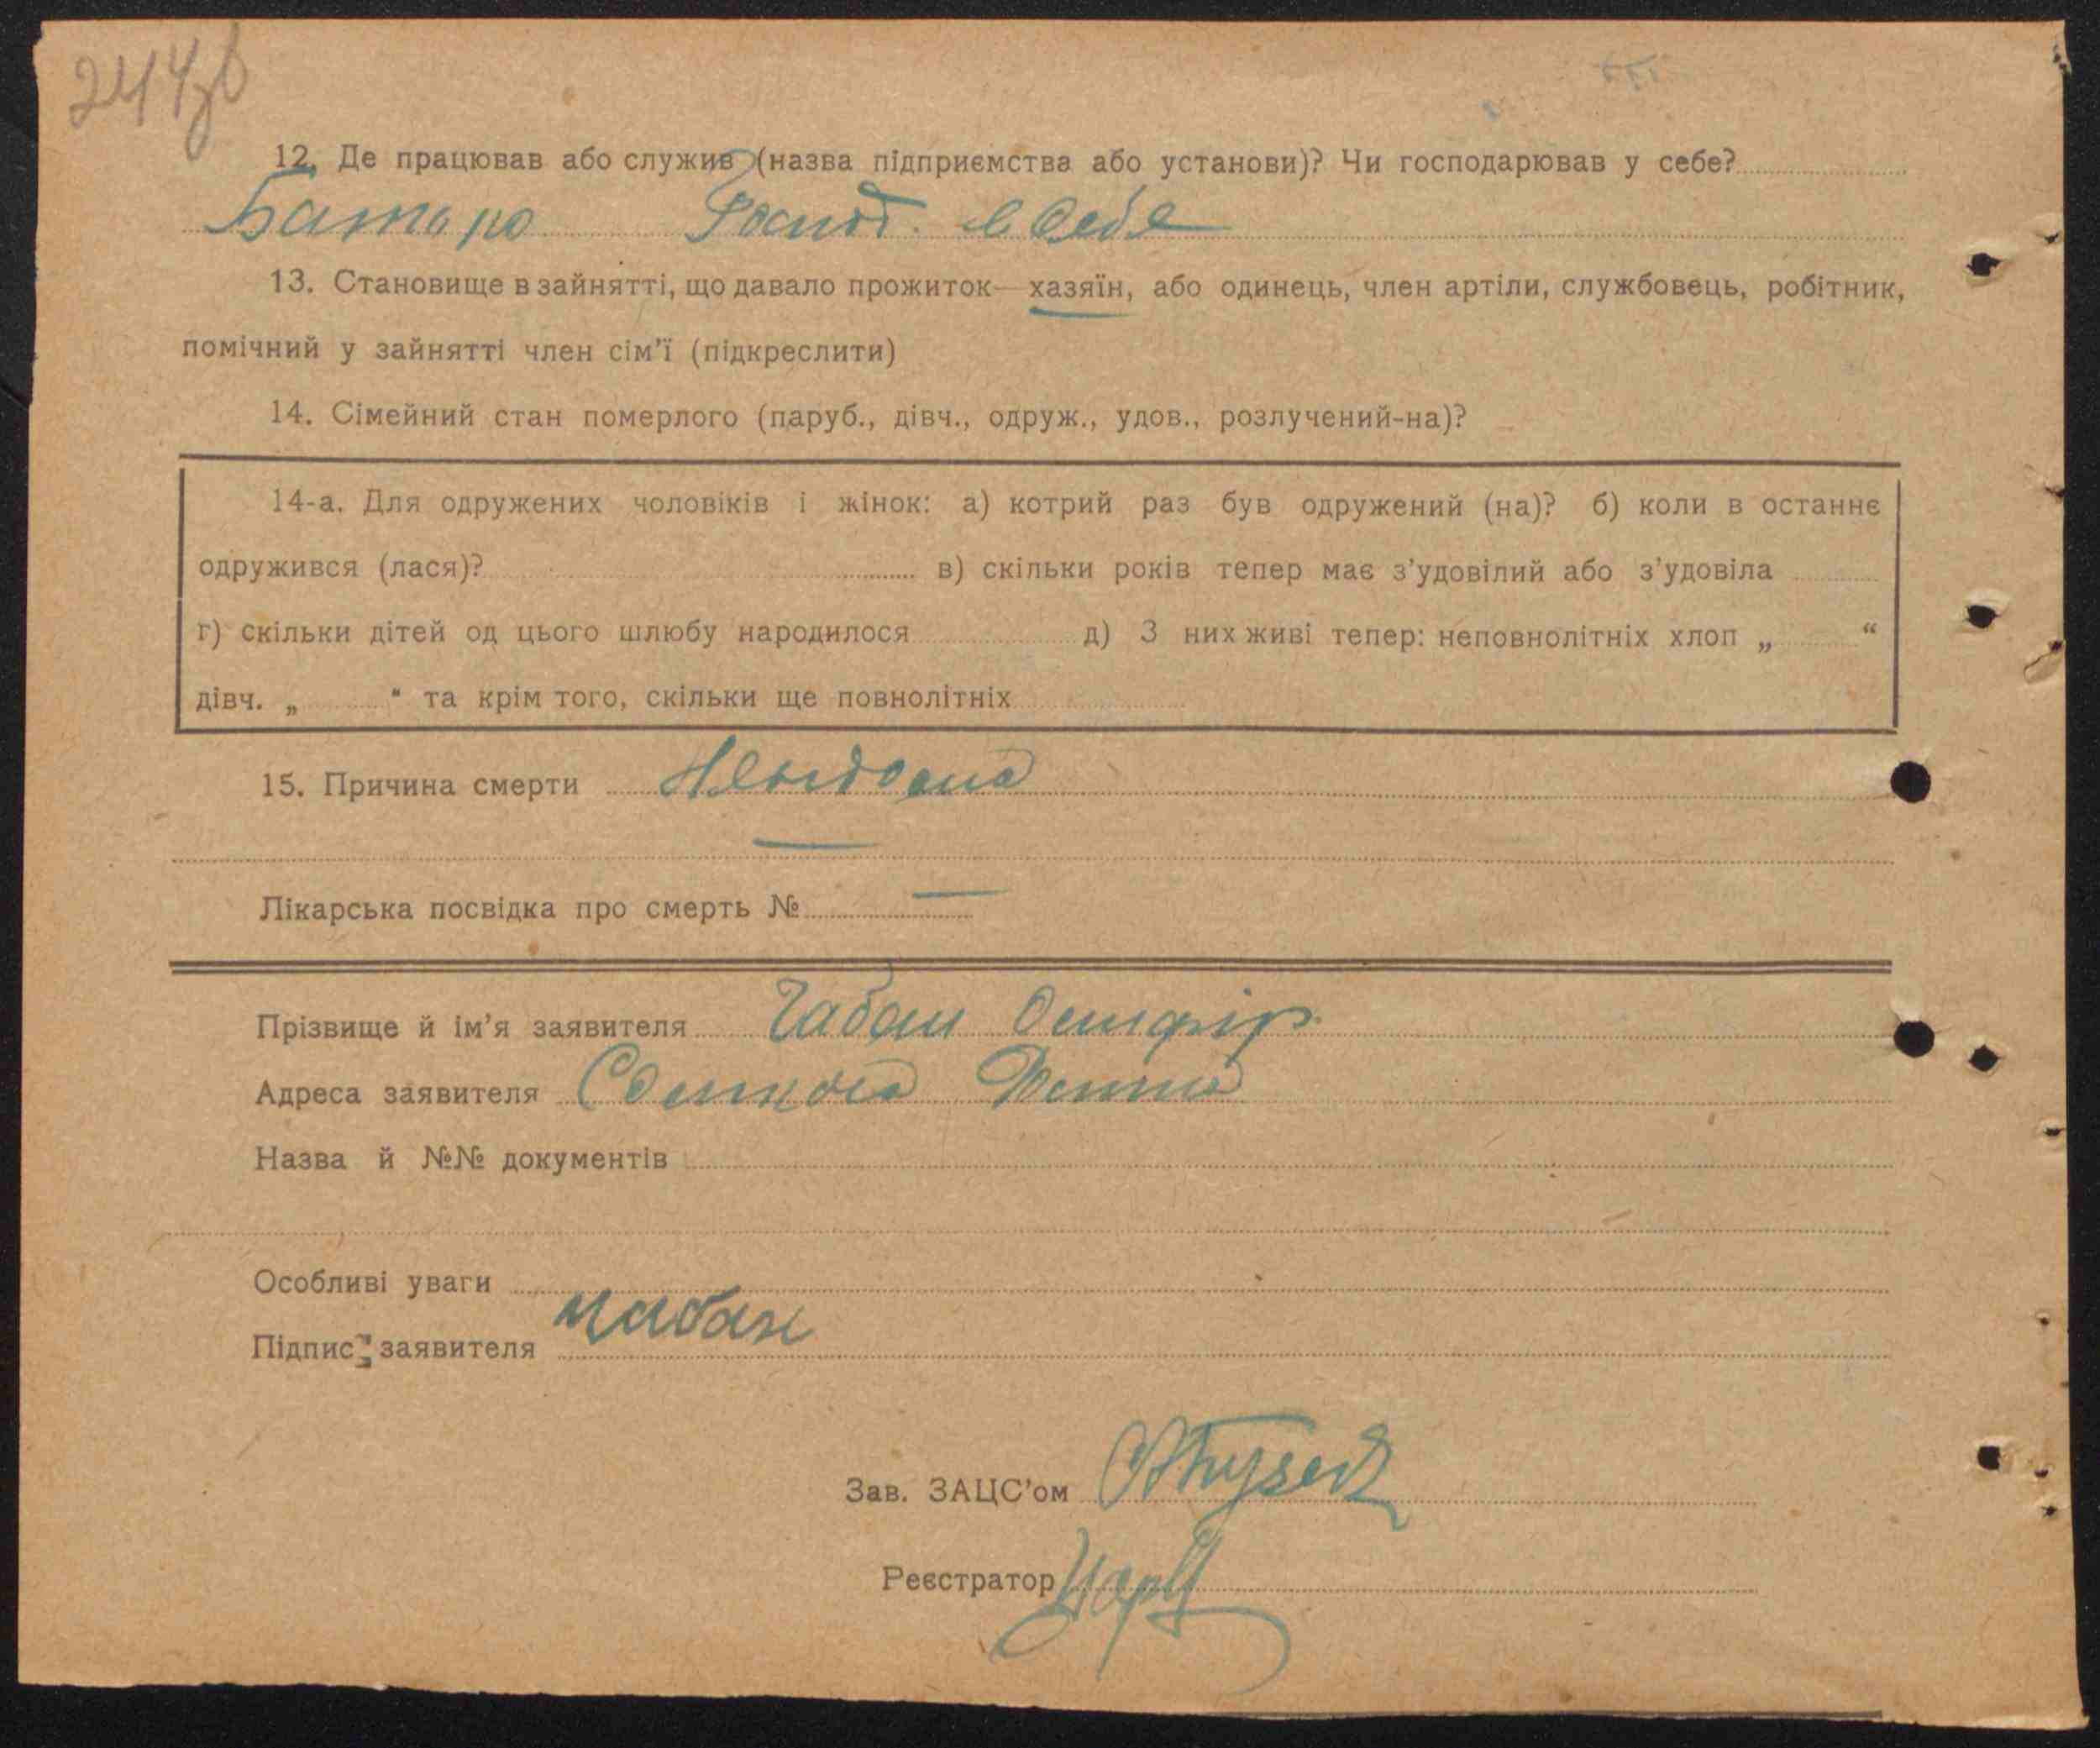 244зв
12. Де працював або служив (назва підприємства або установи)? Чи господарював у себе?
Батько Господ. в себе
13. Становище в зайнятті, що давало прожиток—хазяїн, або одинець, член артіли, службовець, робітник,
помічний у зайнятті член сім'ї (підкреслити)
14. Сімейний стан померлого (паруб., дівч., одруж., удов., розлучений-на)?
14-а. Для одружених чоловіків і жінок: а) котрий раз був одружений (на)? б) коли в останнє
одружився (лася)? в) скільки років тепер має з'удовілий або з'удовіла
г) скільки дітей од цього шлюбу народилося д) З них живі тепер: неповнолітніх хлоп „ “
дівч. „ “ та крім того, скільки ще повнолітніх
15. Причина смерти
Лікарська посвідка про смерть № —
Прізвище й ім'я заявителя Чабан
Адреса заявителя
Назва й №№ документів
Особливі уваги
Підпис заявителя Чабан
Зав. ЗАЦС'ом
Реєстратор